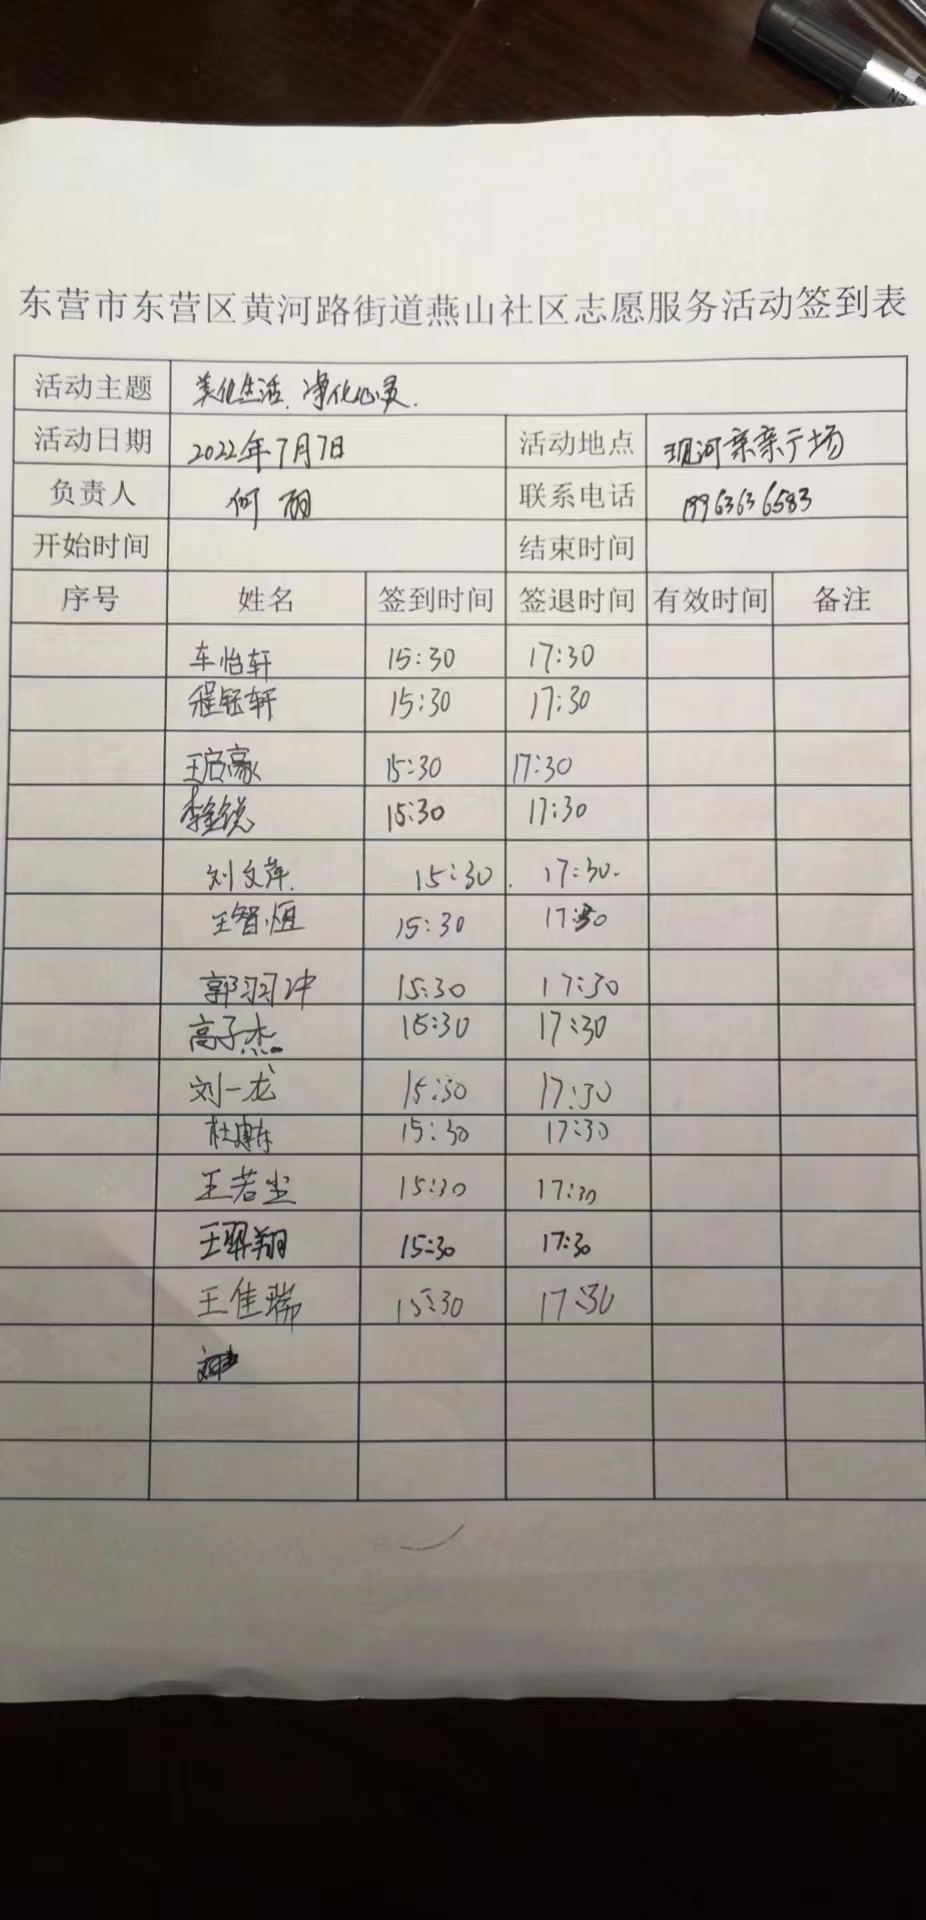 东营市东营区黄河路街道燕山社区志愿服务活动签到表
活动主题 美化生活、净化心灵.
活动日期 2022年7月7日 活动地点 现河亲亲广场
负责人 何丽 联系电话 19963636583
开始时间 结束时间
序号 姓名 签到时间 签退时间 有效时间 备注
车怡轩 15:30 17:30
程钰轩 15:30 17:30
王启豪 15:30 17:30
李金锐 15:30 17:30
刘文萍. 15:30. 17:30.
王智恒 15:30 17:30
郭羽冲 15:30 17:30
高子杰 15:30 17:30
刘一龙 15:30 17:30
15:30 17:30
王若尘 15:30 17:30
王羿翔 15:30 17:30
王佳瑞 15:30 17:30